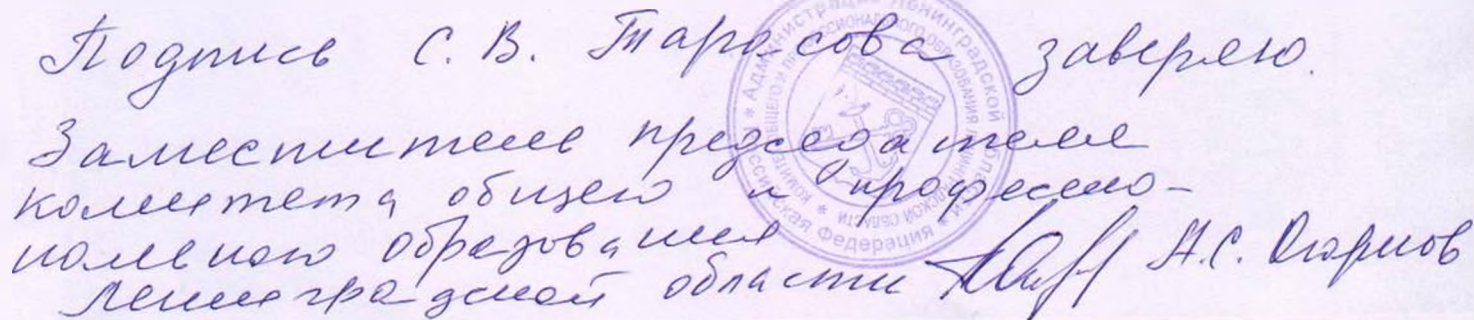 Подпись С. В. Тарасова заверяю.
Заместитель председателя
комитета общего и профессио-
нального образования
Ленинградской области А.С. Огарков
Администрация Ленинградской области * Российская Федерация *
Комитет общего и профессионального образования Ленинградской области *